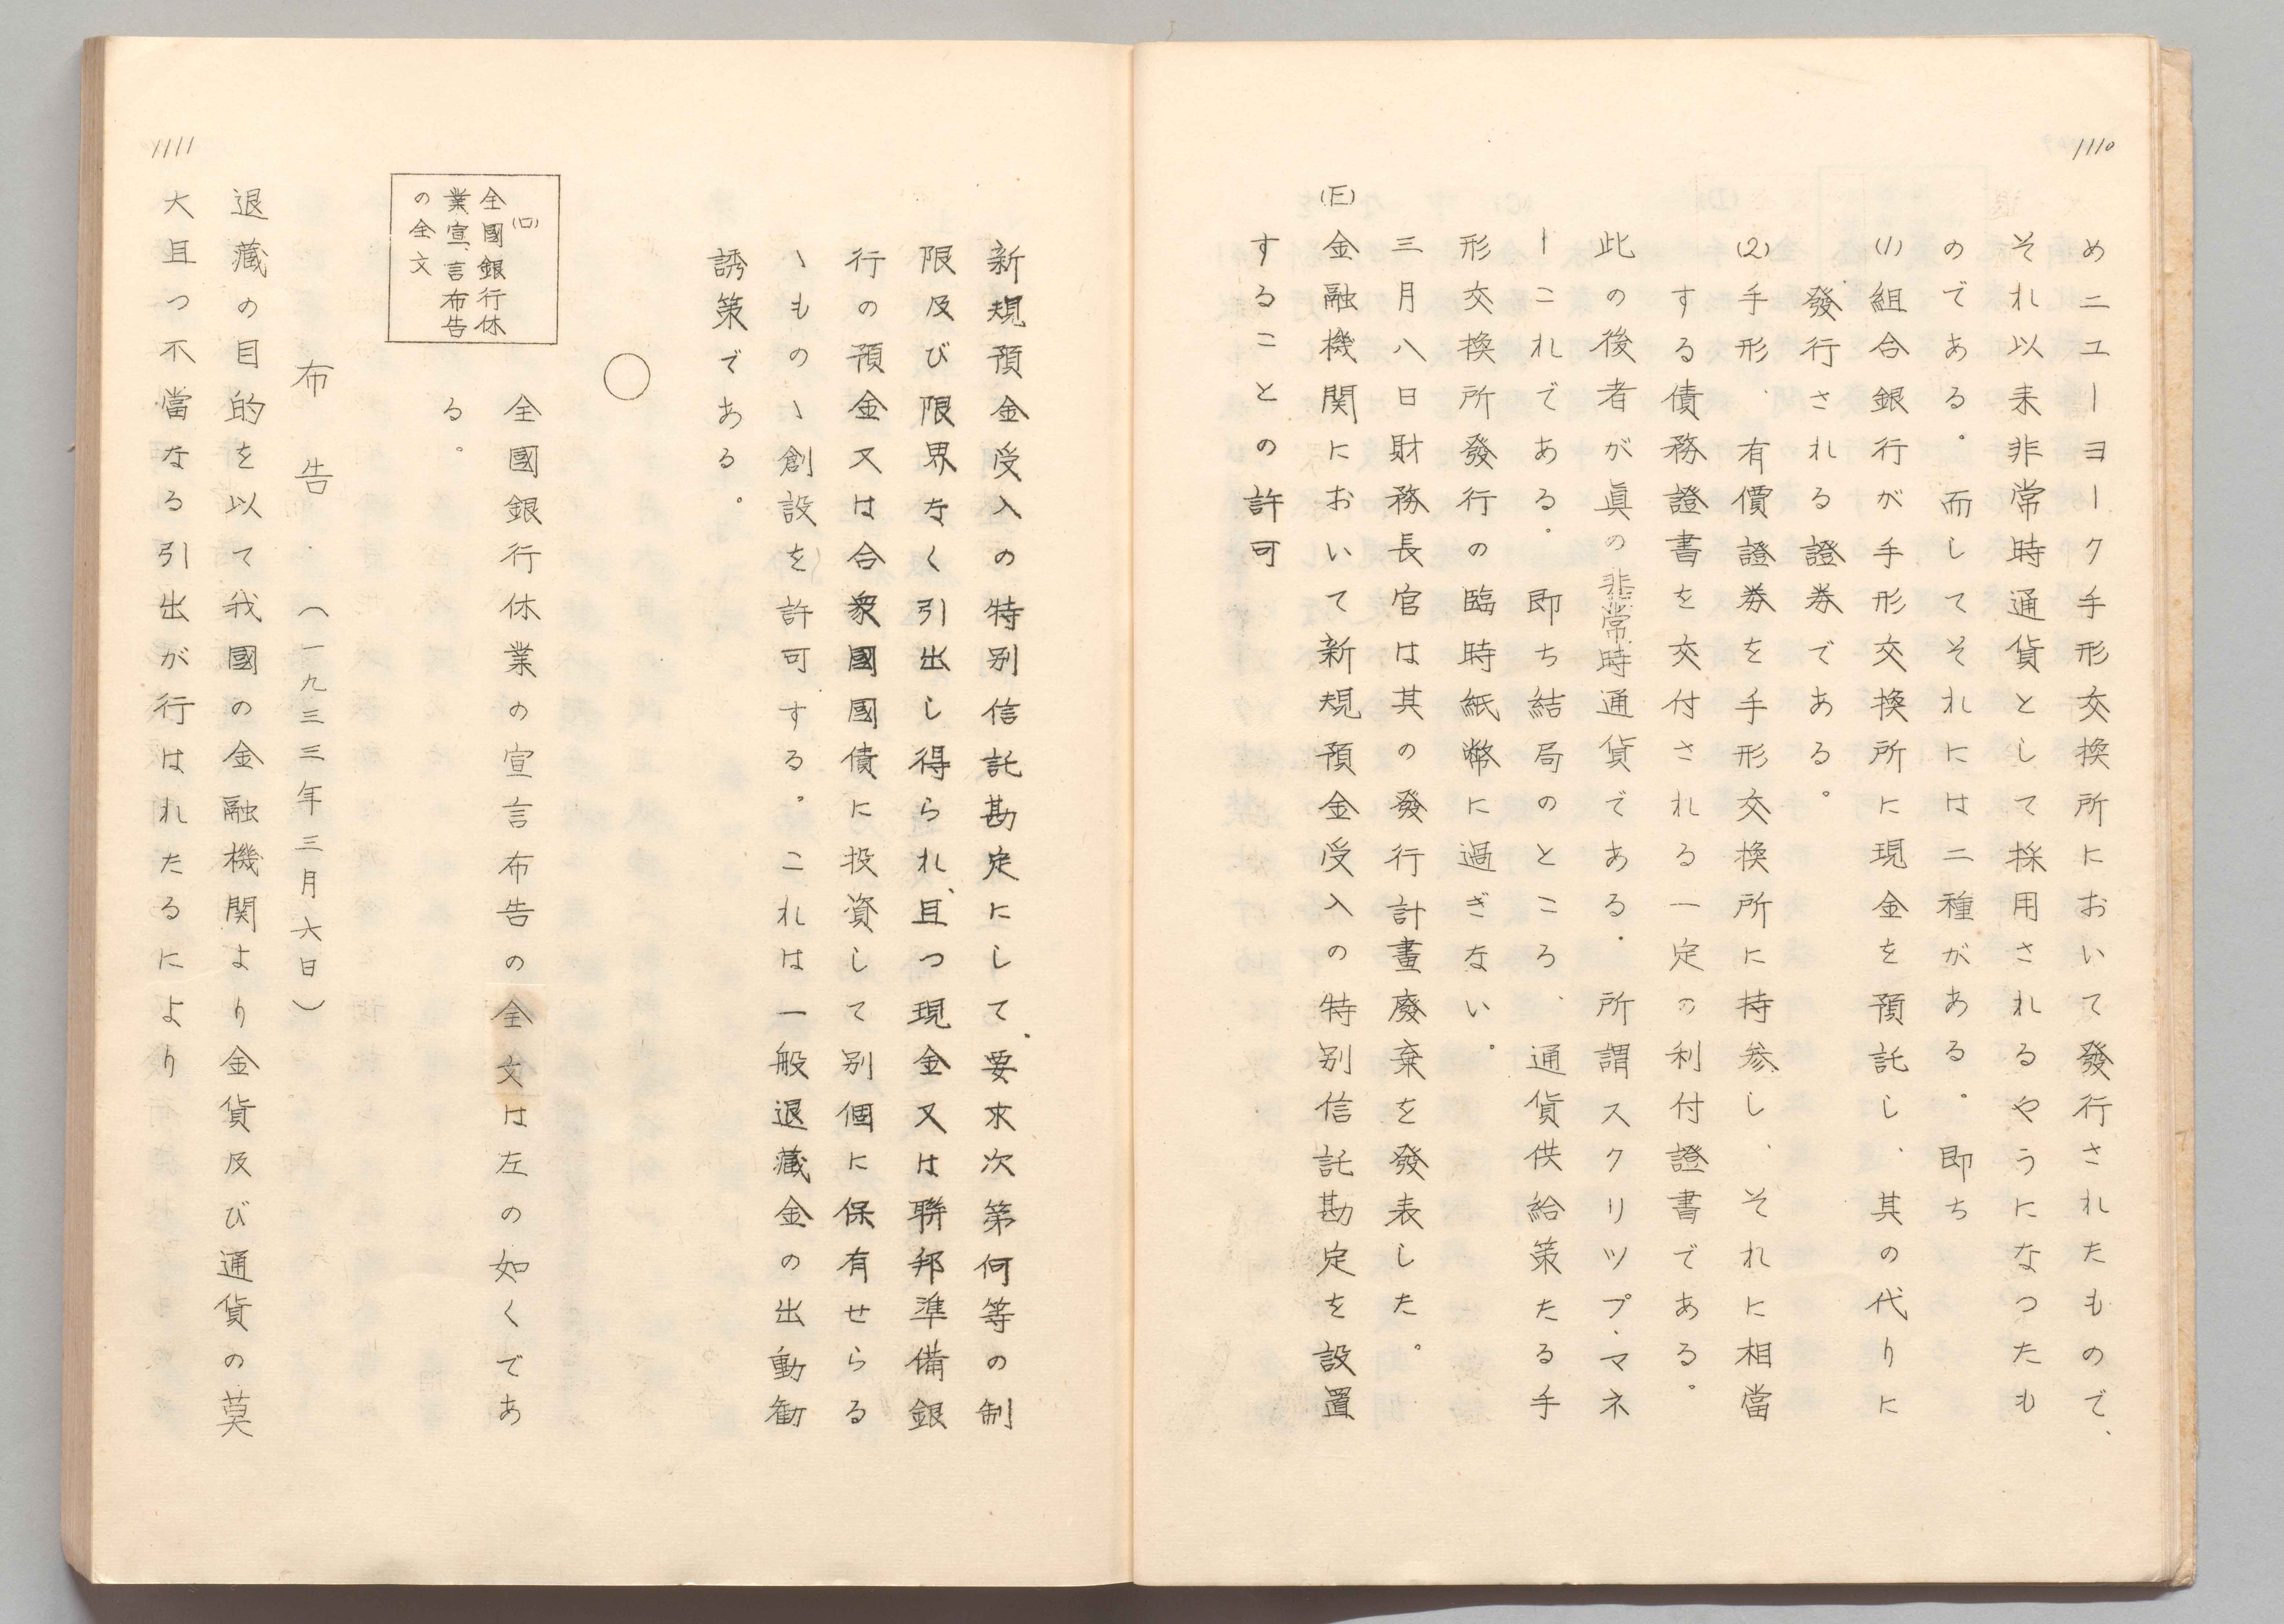 1110
めニユーヨーク手形交換所において發行されたもので、
それ以来非常時通貨として採用されるやうになつたも
のである。而してそれには二種がある。即ち
(1)組合銀行が手形交換所に現金を預託し、其の代りに
發行される證券である。
(2)手形、有價證券を手形交換所に持参し、それに相當
する債務證書を交付される一定の利付證書である。
此の後者が眞の非常時通貨である。所謂スクリツプ・マネ
ーこれである。即ち結局のところ、通貨供給策たる手
形交換所發行の臨時紙幣に過ぎない。
三月八日財務長官は其の發行計畫廢棄を發表した。
(E)金融機関において新規預金受入の特別信託勘定を設置
することの許可
1111
新規預金受入の特別信託勘定にして、要求次第何等の制
限及び限界なく引出し得られ、且つ現金又は聯邦準備銀
行の預金又は合衆國國債に投資して別個に保有せらる
ゝものゝ創設を許可する。これは一般退藏金の出動勧
誘策である。
○
(ロ)
全國銀行休
業宣言布告
の全文
全國銀行休業の宣言布告の全文は左の如くであ
る。
布告.(一九三三年三月六日)
退藏の目的を以て我國の金融機関より金貨及び通貨の莫
大且つ不當なる引出が行はれたるにより